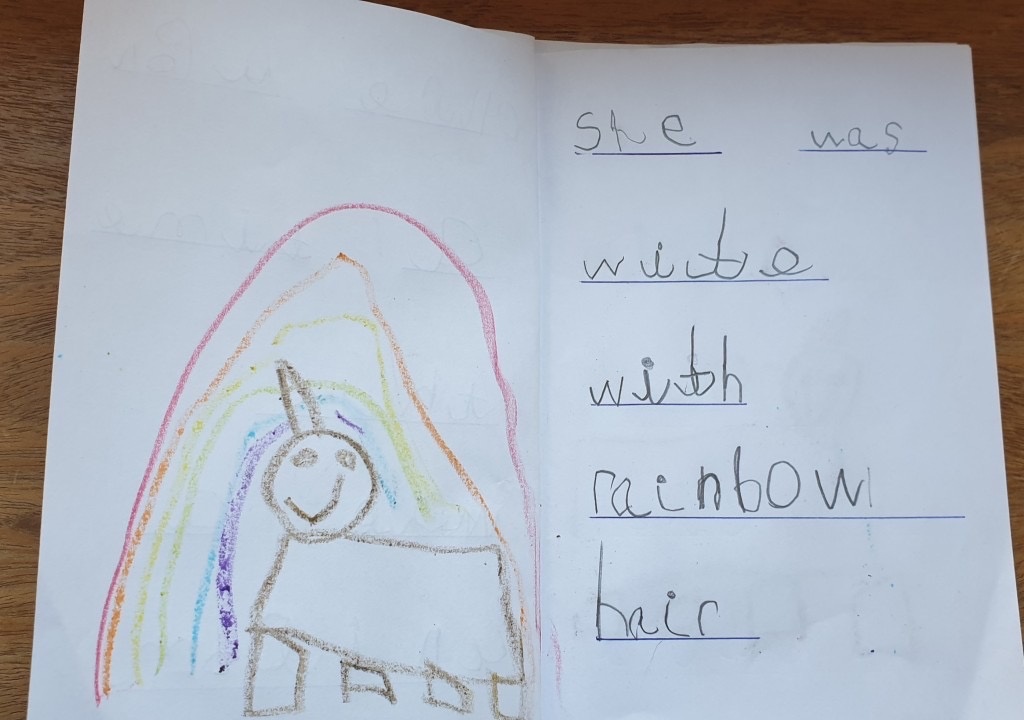 She was
wite
with
rainbow
hair